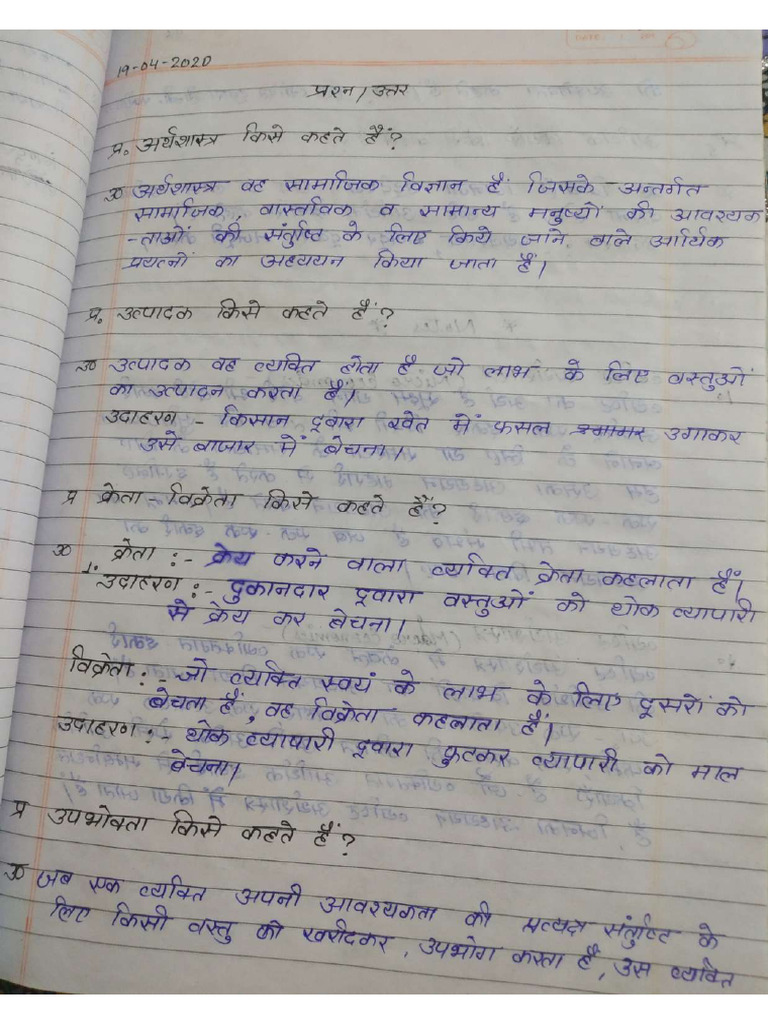 19-04-2020
प्रश्न/उत्तर
प्र. अर्थशास्त्र किसे कहते हैं?
उ० अर्थशास्त्र वह सामाजिक विज्ञान हैं जिसके अन्तर्गत
सामाजिक, वास्तविक व सामान्य मनुष्यों की आवश्यक
-ताओं की संतुष्टि के लिए किये जाने वाले आर्थिक
प्रयत्नों का अध्ययन किया जाता हैं।
प्र. उत्पादक किसे कहते हैं?
उ० उत्पादक वह व्यक्ति होता है जो लाभ के लिए वस्तुओं
का उत्पादन करता हैं।
उदाहरण - किसान द्वारा खेत में फसल उगाकर
उसे बाजार में बेचना।
प्र क्रेता-विक्रेता किसे कहते हैं?
उ० क्रेता :- क्रेय करने वाला व्यक्ति क्रेता कहलाता हैं।
1. उदाहरण :- दुकानदार द्वारा वस्तुओं को थोक व्यापारी
से क्रेय कर बेचना।
विक्रेता :- जो व्यक्ति स्वयं के लाभ के लिए दूसरों को
बेचता हैं, वह विक्रेता कहलाता हैं।
उदाहरण :- थोक व्यापारी द्वारा फुटकर व्यापारी को माल
बेचना।
प्र उपभोक्ता किसे कहते हैं?
उ० जब एक व्यक्ति अपनी आवश्यकता की प्रत्यक्ष संतुष्टि के
लिए किसी वस्तु को खरीदकर, उपभोग करता है, उस व्यक्ति